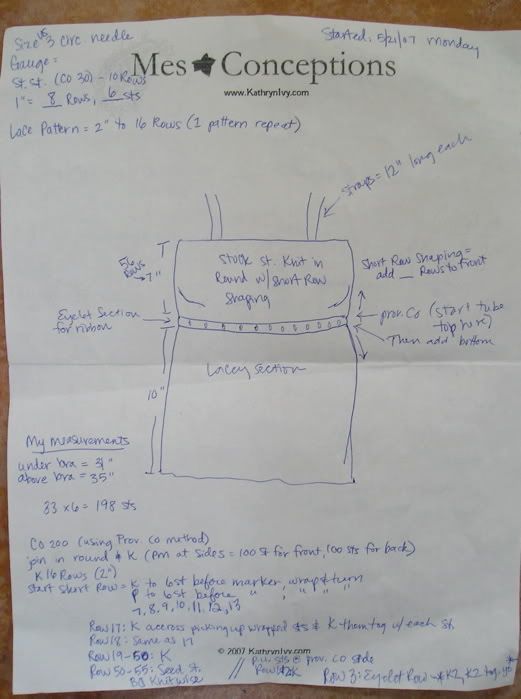 Size US 3 circ. needle
Started, 5/21/07 monday
Gauge:
St. St. (CO 30) - 10 Rows
1" = 8 Rows, 6 sts
Mes Conceptions
www.KathrynIvy.com
Lace Pattern = 2" to 16 Rows (1 pattern repeat)
Straps = 12" long each
56 Rows
→ 7"
Stock st. Knit in
Round w/ Short Row
Shaping
Short Row Shaping =
add __ Rows to front
Eyelet Section
for ribbon
prov. Co (start tube
top here)
Then add bottom
Lacey section
10"
My measurements
under bra = 31"
above bra = 35"
33 x 6 = 198 sts
CO 200 (using Prov. Co method)
join in round & K (pm at sides = 100 st for front, 100 sts for back)
K 16 Rows (2")
Start Short Row = K to 6 st before marker, wrap & turn
P to 6 st before " " " " "
7, 8, 9, 10, 11, 12, 13
Row 17: K accross picking up wrapped sts & K them tog w/ each st.
Row 18: same as 17
Row 19-50: K
Row 50-55: Seed St.
BO Knitwise
© 2007 KathrynIvy.com
// pick sts @ prov. CO side
Row 1 & 2 K
Row 3: Eyelet Row - *K2, K2 tog, yo*